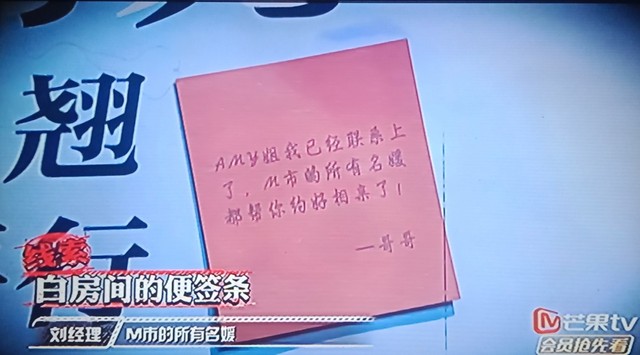 翘
AMY姐我已经联系上
了,M市的所有名媛
都帮你约好相亲了!
—哥哥
线索
白房间的便签条
刘经理 M市的所有名媛
芒果tv
会员抢先看